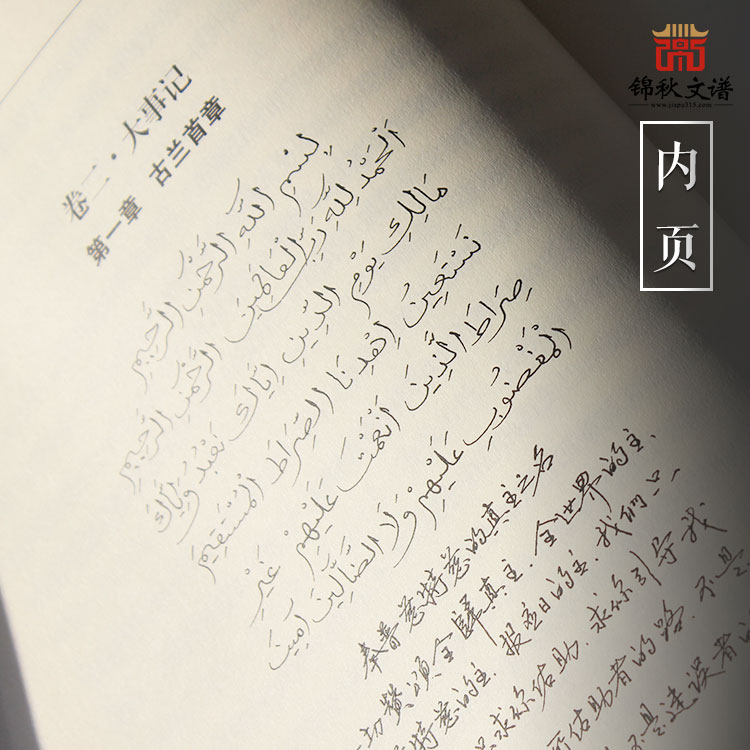 锦秋文谱
www.jinpu315.com
内页
卷三·大事记
第一章 古兰首章
لِبِسْمِ اللَّهِ الرَّحْمٰنِ الرَّحِيْمِ
اَلْحَمْدُ لِلَّهِ رَبِّ الْعَالَمِيْنَ الرَّحْمٰنِ الرَّحِيْمِ
مَالِكِ يَوْمِ الدِّيْنِ اِيَّاكَ نَعْبُدُ وَاِيَّاكَ
نَسْتَعِيْنُ اِهْدِنَا الصِّرَاطَ الْمُسْتَقِيْمَ
صِرَاطَ الَّذِيْنَ اَنْعَمْتَ عَلَيْهِمْ غَيْرِ
الْمَغْضُوْبِ عَلَيْهِمْ وَلَا الضَّالِّيْنَ اٰمِيْنَ
奉普慈特慈的真主之名
一切赞颂全归真主、全世界的主、
特慈的主、报应日的主、我们只
求你佑助、求你引导我
佑助者的路、不是
不是迷误者的